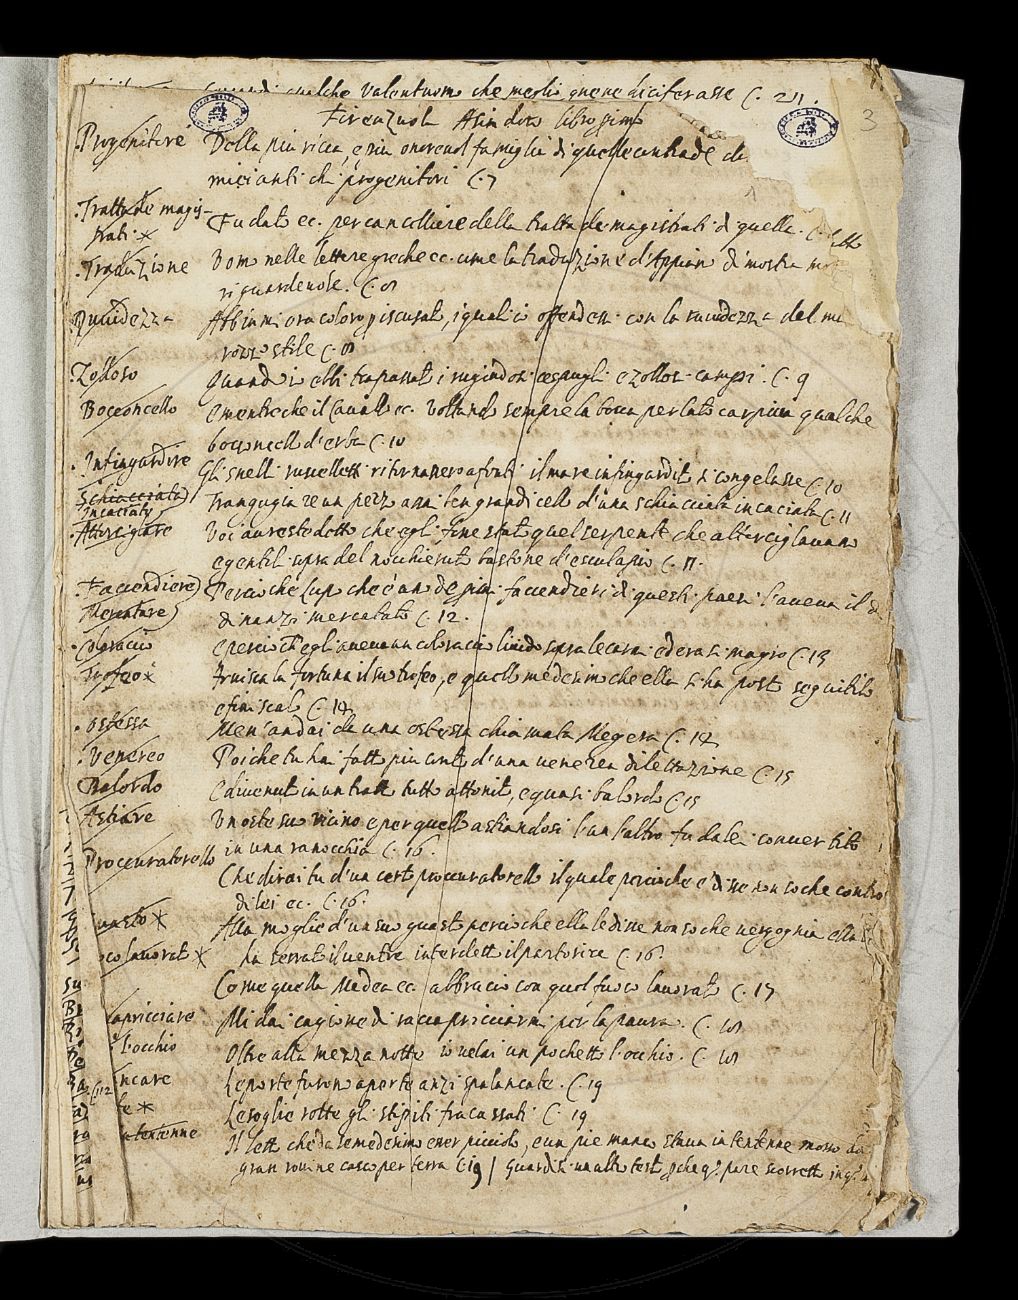 qualche valentuomo che meglio gnene diciferasse C. 211.
Firenzuola Asin doro libro primo
3
Progenitore Della piu ricca, e piu onorevol famiglia di quelle contrade
1
micianti chi progenitori C. 7
Tratta de magis-
trati * Fu dato ec. per cancelliere della tratta de magistrati di quella
Traduzione Vom nelle lettere greche ec. come la traduzione d'Appian di mostra
riguardevole. C. 8
Ruvidezza Abbinmi ora coloro piscusato, i quali io offendessi con la ruvidezza del mi
rozzo stile C. 8
Zolloso Quand io ebbi trapassati i rugiadosi cespugli e zollosi campi. C. 9
Bocconcello E mentre che il Cavallo ec. voltando sempre la bocca per lato carpiva qualche
bocconcello d'erba C. 10
Infingardire Gli snelli ruscelletti ritornassero a fonti il mare infingardito si congelasse C. 10
Schiacciata
Incaciata Trangugiare un pezzo assai ben grandicello d'una schiacciata incaciata C. 11
Attorcigliare Voi avreste detto che egli fusse stato quel serpente che attorcigliavano
e gentil sopra del nocchieruto bastone d'esculapio C. 11.
Faccendiere Percioche Lupo che è un de piu faccendieri di questi paesi l'aveva il dì
Mercatare dinanzi mercatato C. 12.
Coloraccio e percio ch'egli aveva un coloraccio livido sopra le carni ed era sì magro C. 13
Trofeo * Fruisca la fortuna il suo trofeo, e quello medesimo che ella si ha posto seguitilo
e finiscalo C. 14
Ostessa Men' andai da una ostessa chiamata Megera C. 14
Venereo Poiche tu hai fatto piu conto d'una venerea dilettazione C. 15
Balordo E divenuto in un tratto tutto attonito, e quasi balordo C. 15
Astiare Un oste suo vicino e per quello astiandosi l'un l'altro fu da lei convertito
in una ranocchia C. 16.
Proccuratorello Che dirai tu d'un certo proccuratorello il quale percioche e' disse non so che contro
di lei ec. C. 16.
* Alla moglie d'un suo guasto percioche ella le disse non so che vergognia ella
ha serrato il ventre interdetto il partorire C. 16.
lavorato * Come quella Medea ec. abbracio con quel fuoco lavorato C. 17
apricciare Mi dai cagione di raccapricciarmi per la paura. C. 18
l'occhio Oltre alla mezza notte io velai un pochetto l'occhio. C. 18
ncare Le porte furono aperte anzi spalancate. C. 19
* Le soglie rotte gli stipiti fracassati C. 19
tentenne Il letto che da se medesimo esser picciolo, e un pie manco stava in tentenne mosso da
gran rovine casco per terra C. 19 / Guardisi un altro testo